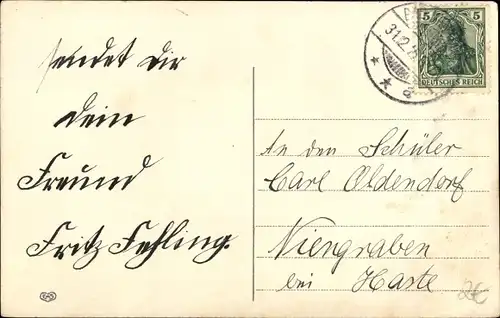 sendet dir
dein
Freund
Fritz Fehling.
An den Schüler
Carl Oldendorf
Niengraben
bei Haste
5 5
DEUTSCHES REICH
31.12.
a
2€